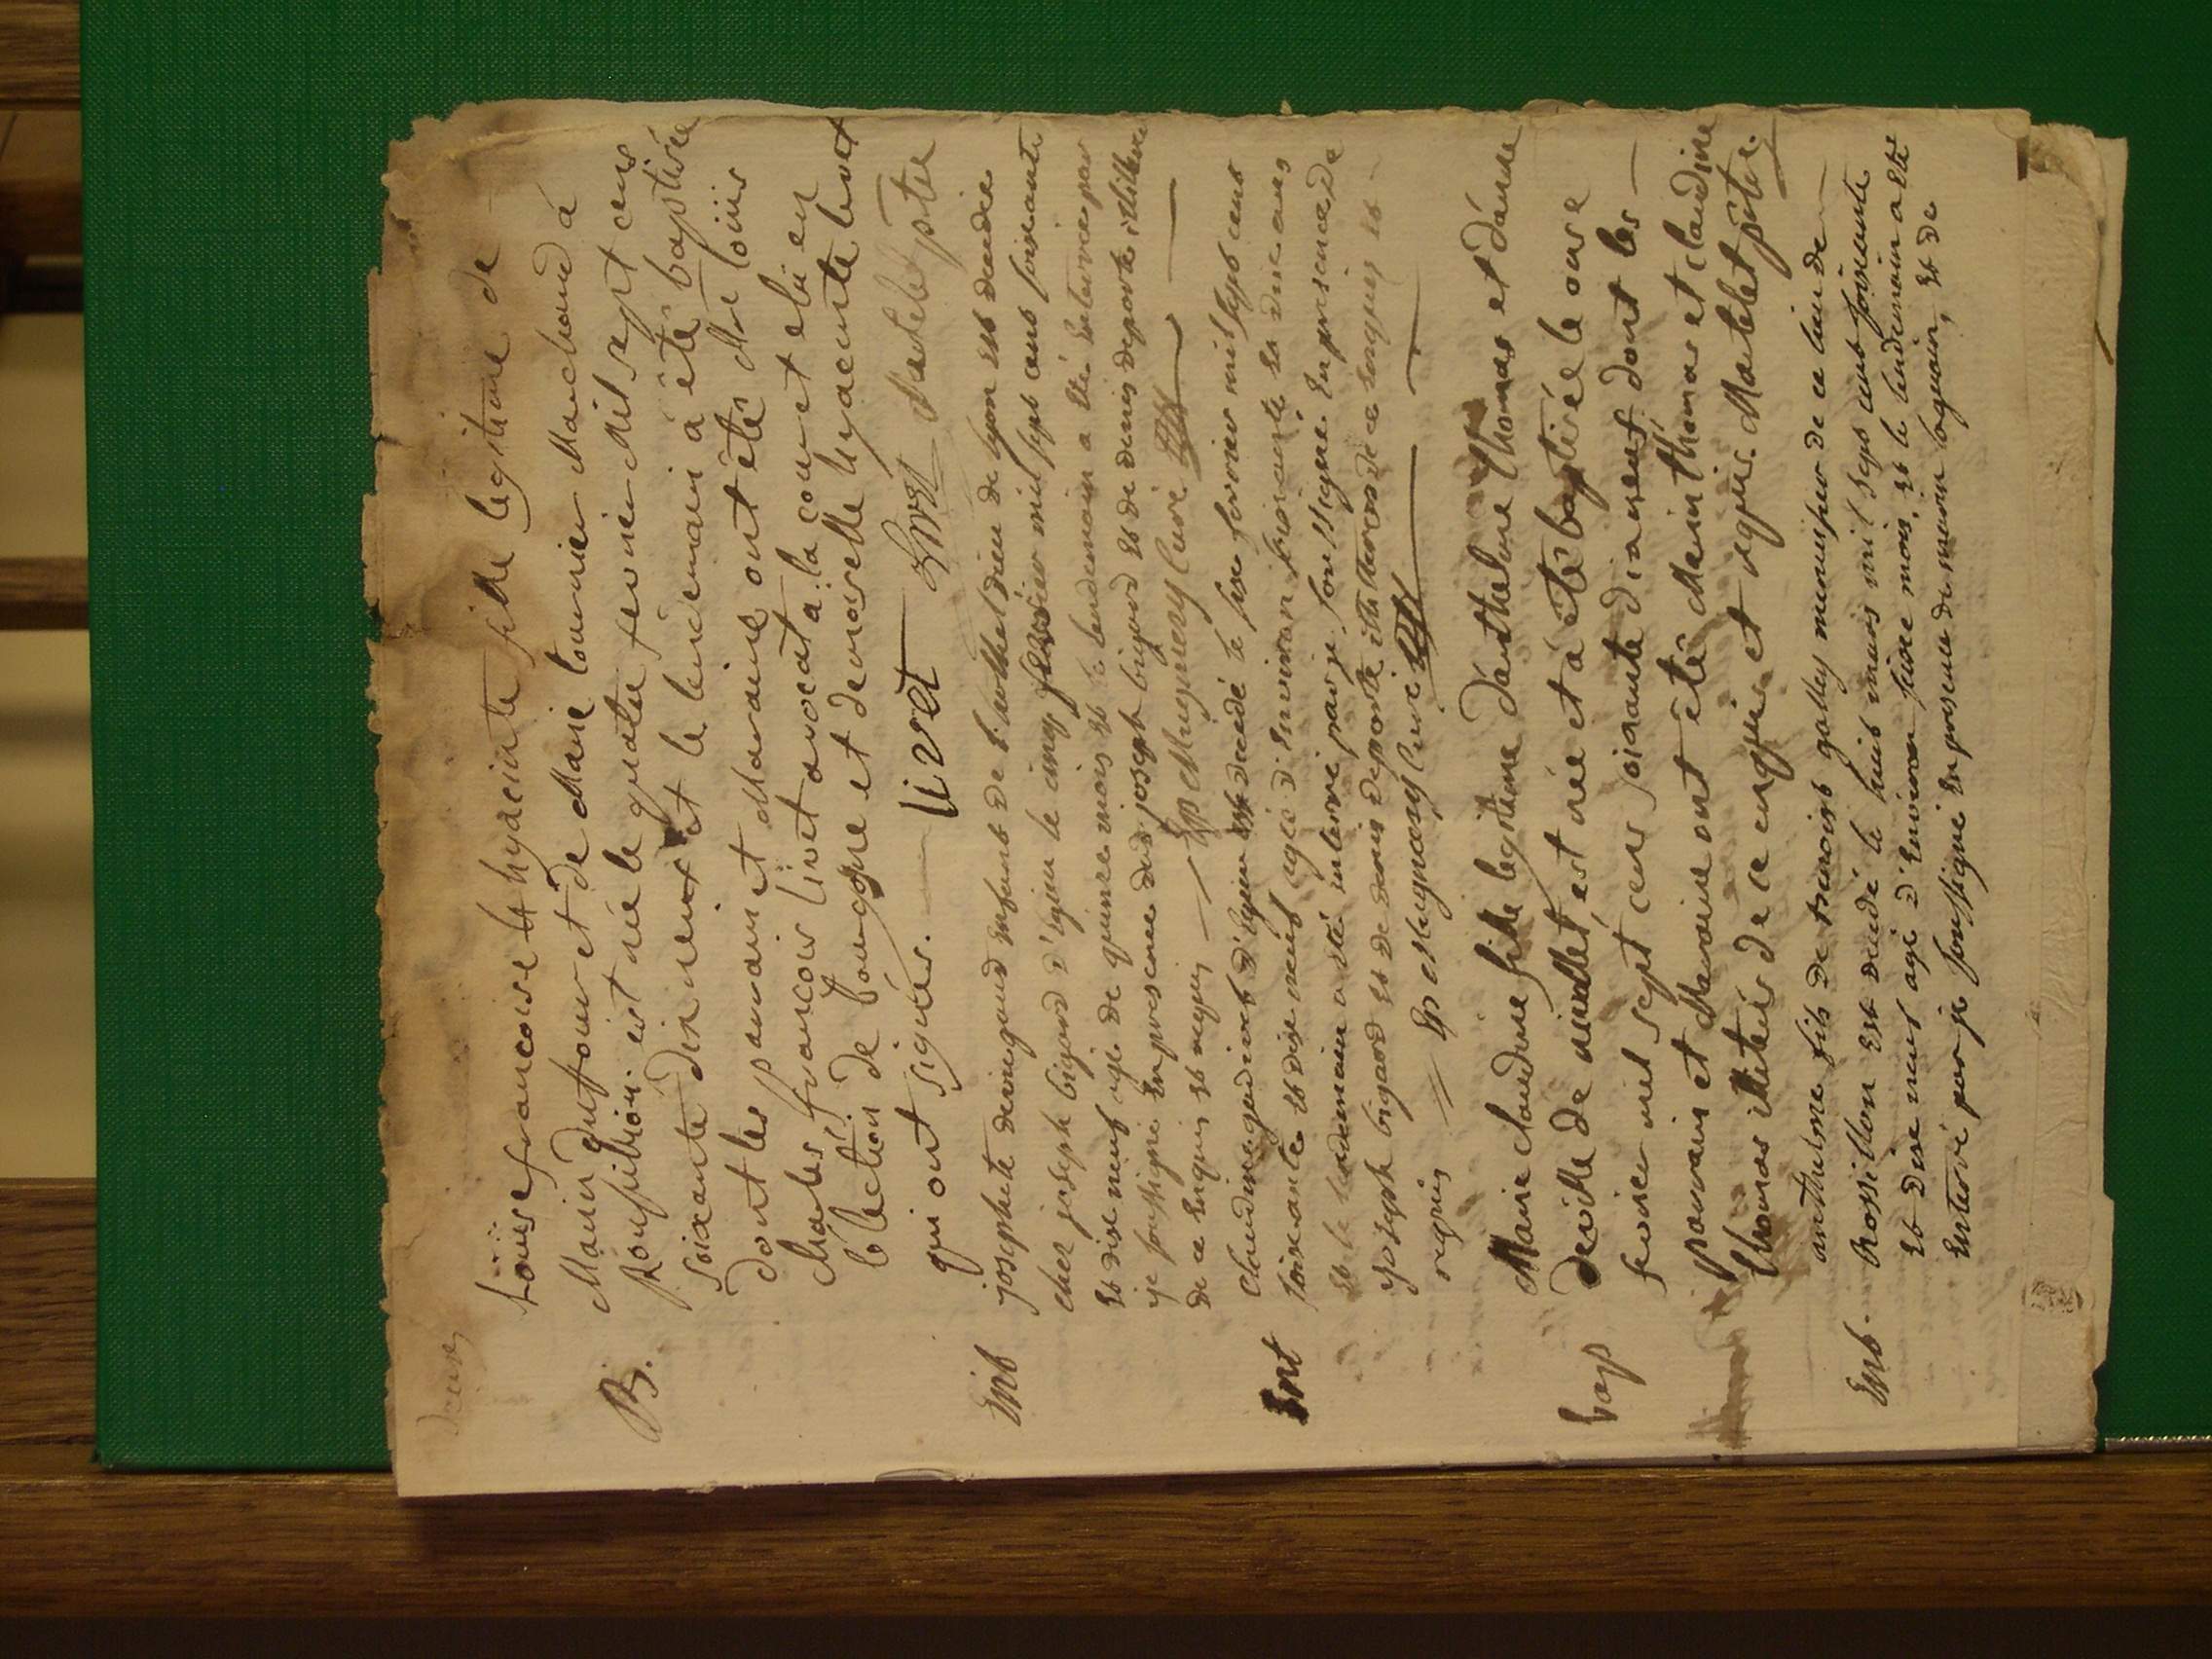 B.
Louise francoise hyacinte fille legitime de
Marin dufour et de Marie tournier Marchand à
Roussillion est née le quatre fevrier Mil sept cens
soixante dix neuf et le lendemain a été baptisée
dont les parrain et Marraine ont étés Mre loüis
charles francois livet avocat a la cour et elû en
l'élection de bourgogne et demoiselle hyacinte livet
qui ont signés. livet Livet Martelet ptre
Ent
josephte enfant de l'hottel dieu de lyon est decedée
chez joseph bigard d'ijeu le cinq fevrier mil sept cent soixante
et dix neuf agé de quinze mois et le lendemain a été enterrée par
je soussigné en presence dud joseph bigard et de denis deporte illiteré
de ce enquis et requis Mugnery Curé
Ent
Claudine d'ijeu est decedé le six fevrier mil sept cent
soixante et dix neuf agée d'environ soixante et dix ans
et le lendemain a été enterré par je soussigné en presence de
joseph bigard et de denis deporte illiteres de ce enquis et
requis Mugnery Curé
bap
Marie claudine fille legitime d'anthelme thomas et d'anne
est née et a été baptisée le onze
fevrier mil sept cens soixante dix neuf dont les
parrain et Marraine ont été thomas et claudine
thomas illiterés de ce enquis et requis. Martelet ptre.
Ent.
anthelme fils de galley menuisier de ce lieu de
Rossillon est decedé le huit mars mil sept cent soixante
et dix neuf agé d'environ mois, et le lendemain a été
enterré par je soussigné en presence de et de